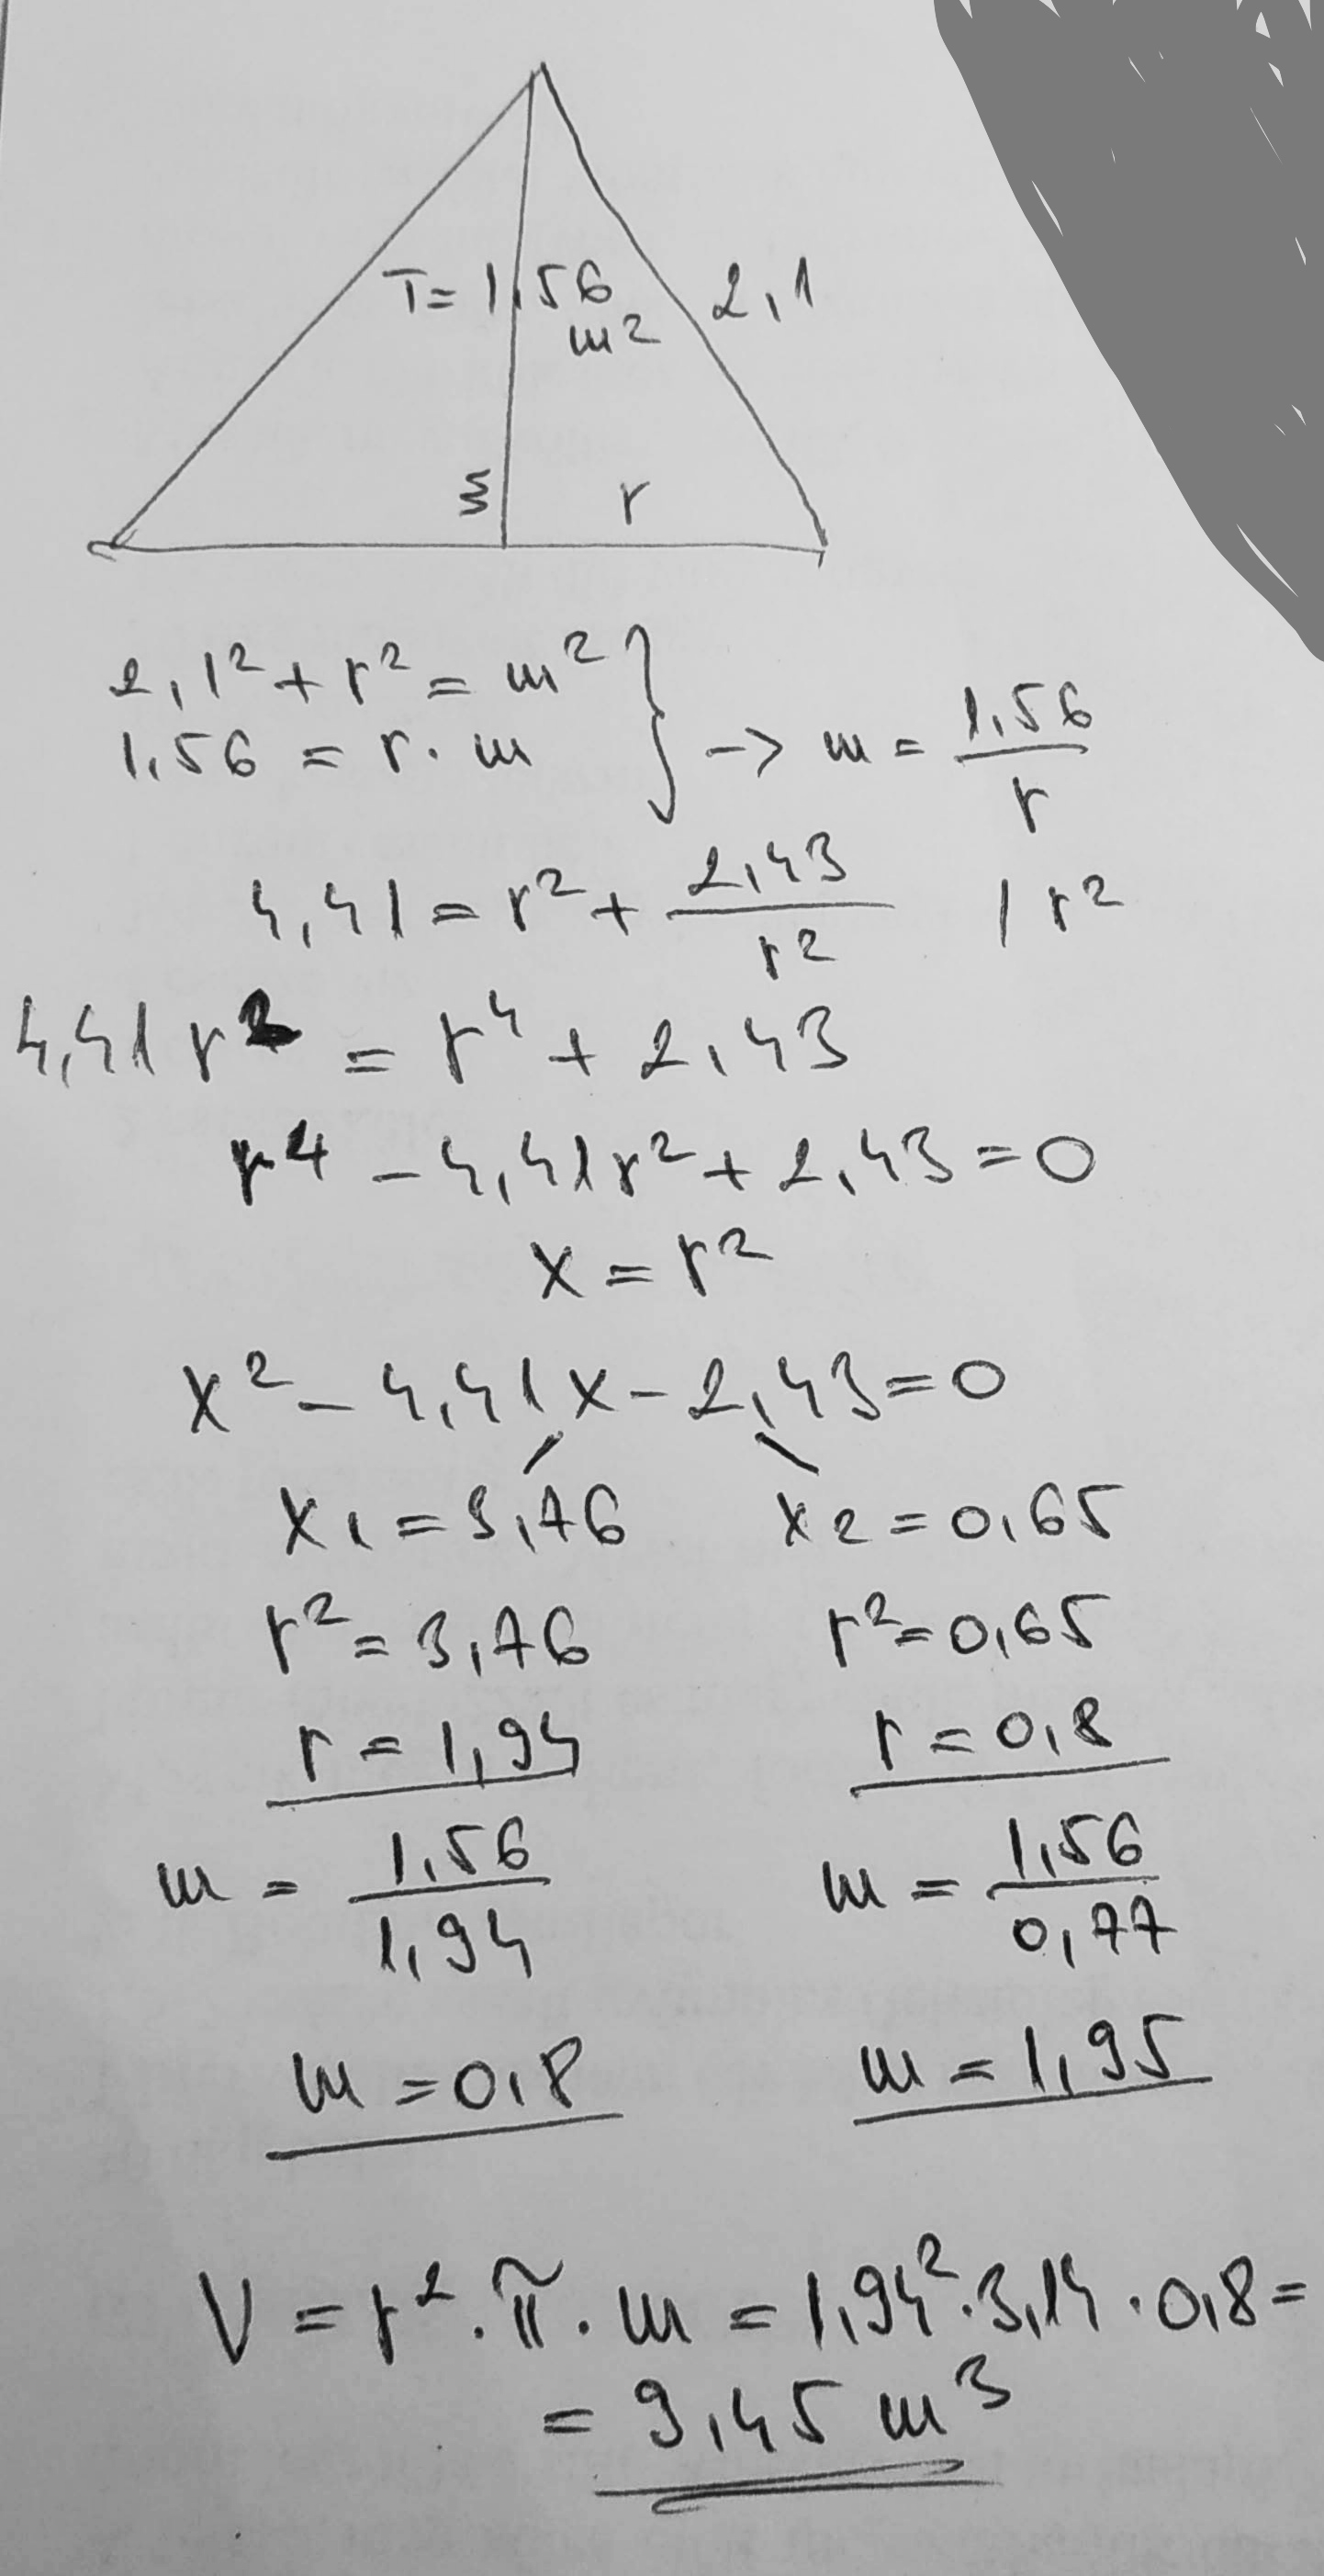 T = 1,56 m²
2,1
m
r
2,1² + r² = m²
1,56 = r · m } -> m = 1,56 / r
4,41 = r² + 2,43 / r² / r²
4,41 r² = r⁴ + 2,43
r⁴ - 4,41r² + 2,43 = 0
x = r²
x² - 4,41x - 2,43 = 0
x₁ = 3,76 x₂ = 0,65
r² = 3,76 r² = 0,65
r = 1,94 r = 0,8
m = 1,56 / 1,94 m = 1,56 / 0,77
m = 0,8 m = 1,95
V = r² · π · m = 1,94² · 3,14 · 0,8 =
= 9,45 m³